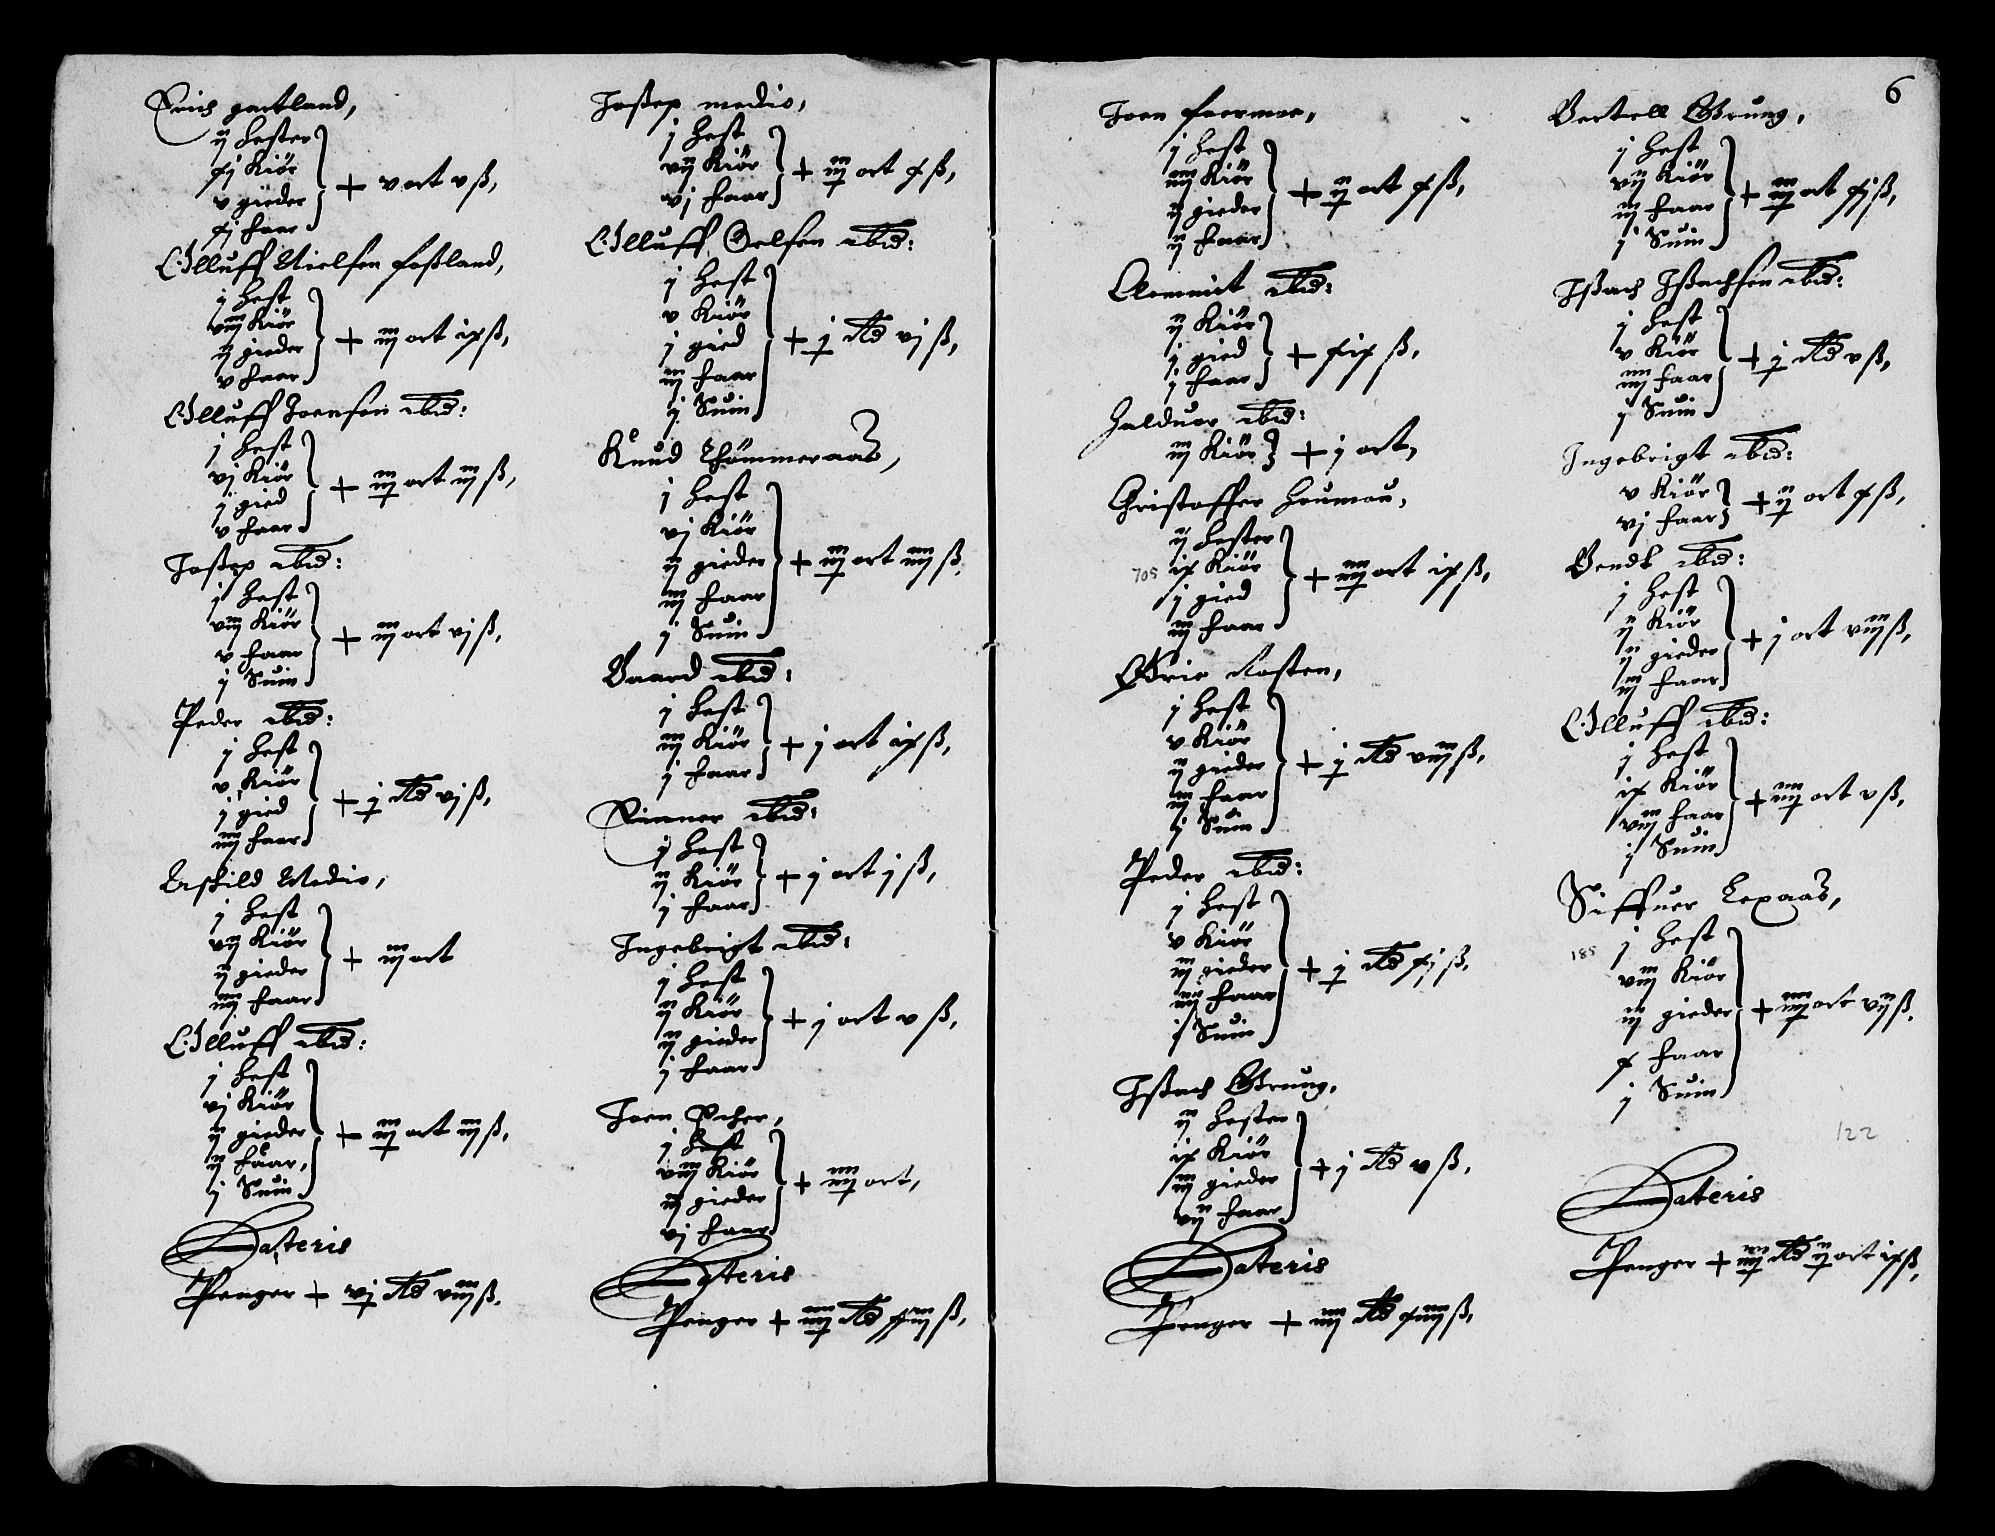 Erich gartland,
ij hester
xj Kiör
v gieder
xj faar
+ v ort v ß,
Olluff Nielsen foßland,
j hest
viij Kiör
ij gieder
v faar
+ iij ort ix ß,
Olluff Joensen ibid:
j hest
vj Kiör
j gied
v faar
+ iij ort iij ß,
Joßep ibid:
j hest
viij Kiör
v faar
j Suin
+ iij ort vj ß,
Peder ibid:
j hest
v Kiör
j gied
iiij faar
+ j Rd vj ß,
Aschild Medio,
j hest
vij Kiör
ij gieder
iiij faar
+ iij ort
Olluff ibid:
j hest
vj Kiör
ij gieder
ij faar,
j Suin
+ iij ort iij ß,
Lateris
Penger + vj Rd viij ß.
Joßep medio,
j hest
vij Kiör
vj faar
+ iij ort x ß,
Olluff Oelsen ibid:
j hest
v Kiör
j gied
iij faar
j Suin
+ j Rd vj ß,
Knud Thömmeraas,
j hest
vj Kiör
ij gieder
iij faar
j Suin
+ iij ort iiij ß.
Baard ibid:
j hest
iij Kiör
j faar
+ j ort ix ß,
Simner ibid:
j hest
ij Kiör
j faar
+ j ort j ß,
Ingebrigt ibid:
j hest
ij Kiör
ij gieder
j faar
+ j ort v ß,
Joen Eher,
j hest
viij Kiör
iij gieder
vj faar
+ iiij ort,
Lateris
Penger + iiij Rd xiij ß,
6
Joen faermoe,
j hest
iiij Kiör
ij gieder
ij faar
+ ij ort x ß,
Clemmit ibid:
ij Kiör
j gied
j faar
+ xix ß,
Halduor ibid:
iij Kiör
+ j ort,
Christoffer houmou,
ij hester
ix Kiör
j gied
iiij faar
705
+ iiij ort ix ß,
Brie Rosten,
j hest
v Kiör
ij gieder
iij faar
j Suin
+ j Rd viij ß,
Peder ibid:
j hest
v Kiör
iij gieder
iiij faar
j Suin
+ j Rd xj ß,
Ißach Grung,
ij hester
ix Kiör
iij gieder
vij faar
+ j Rd v ß,
Lateris
Penger + iiij Rd xiiij ß,
Bertell Grung,
j hest
vij Kiör
iij faar
j Suin
+ iij ort xj ß,
Ißach Ißachsen ibid:
j hest
v Kiör
iiij faar
j Suin
+ j Rd v ß,
Ingebrigt ibid:
v Kiör
vj faar
+ ij ort x ß,
Bendt ibid:
j hest
ij Kiör
ij gieder
iij faar
+ j ort viij ß,
Olluff ibid:
j hest
ix Kiör
viij faar
j Suin
+ iiij ort v ß,
Siffuer Lexaas,
185
j hest
viij Kiör
iij gieder
x faar
j Suin
+ iiij ort vij ß.
122
Lateris
Penger + iiij Rd ij ort ix ß,